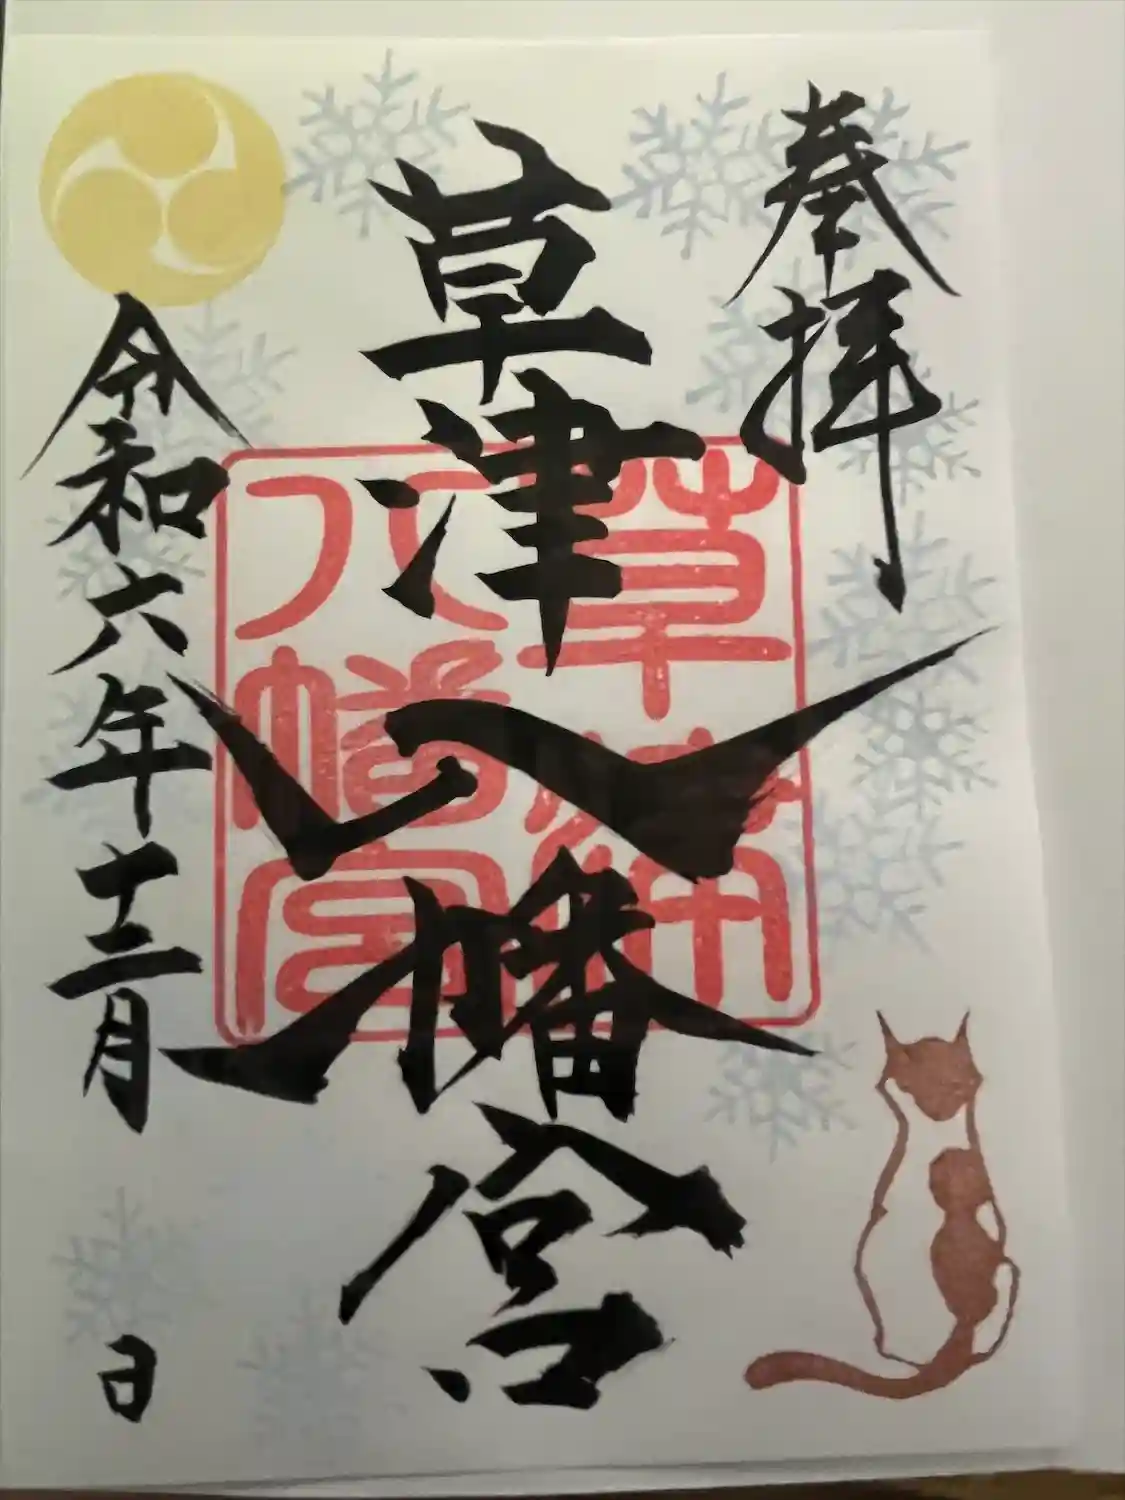 奉拝
草津八幡宮
草津
八幡宮
令和六年十二月 日